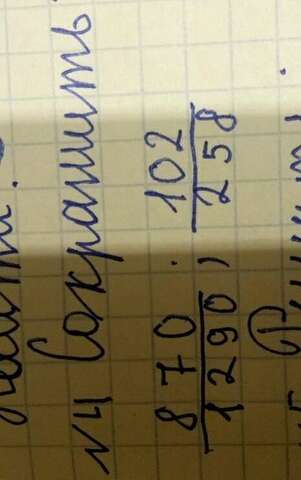 №4 Сократить
870/1290 ; 102/258